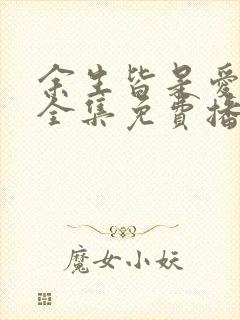 余生皆是爱
全集免費播
魔女小妖